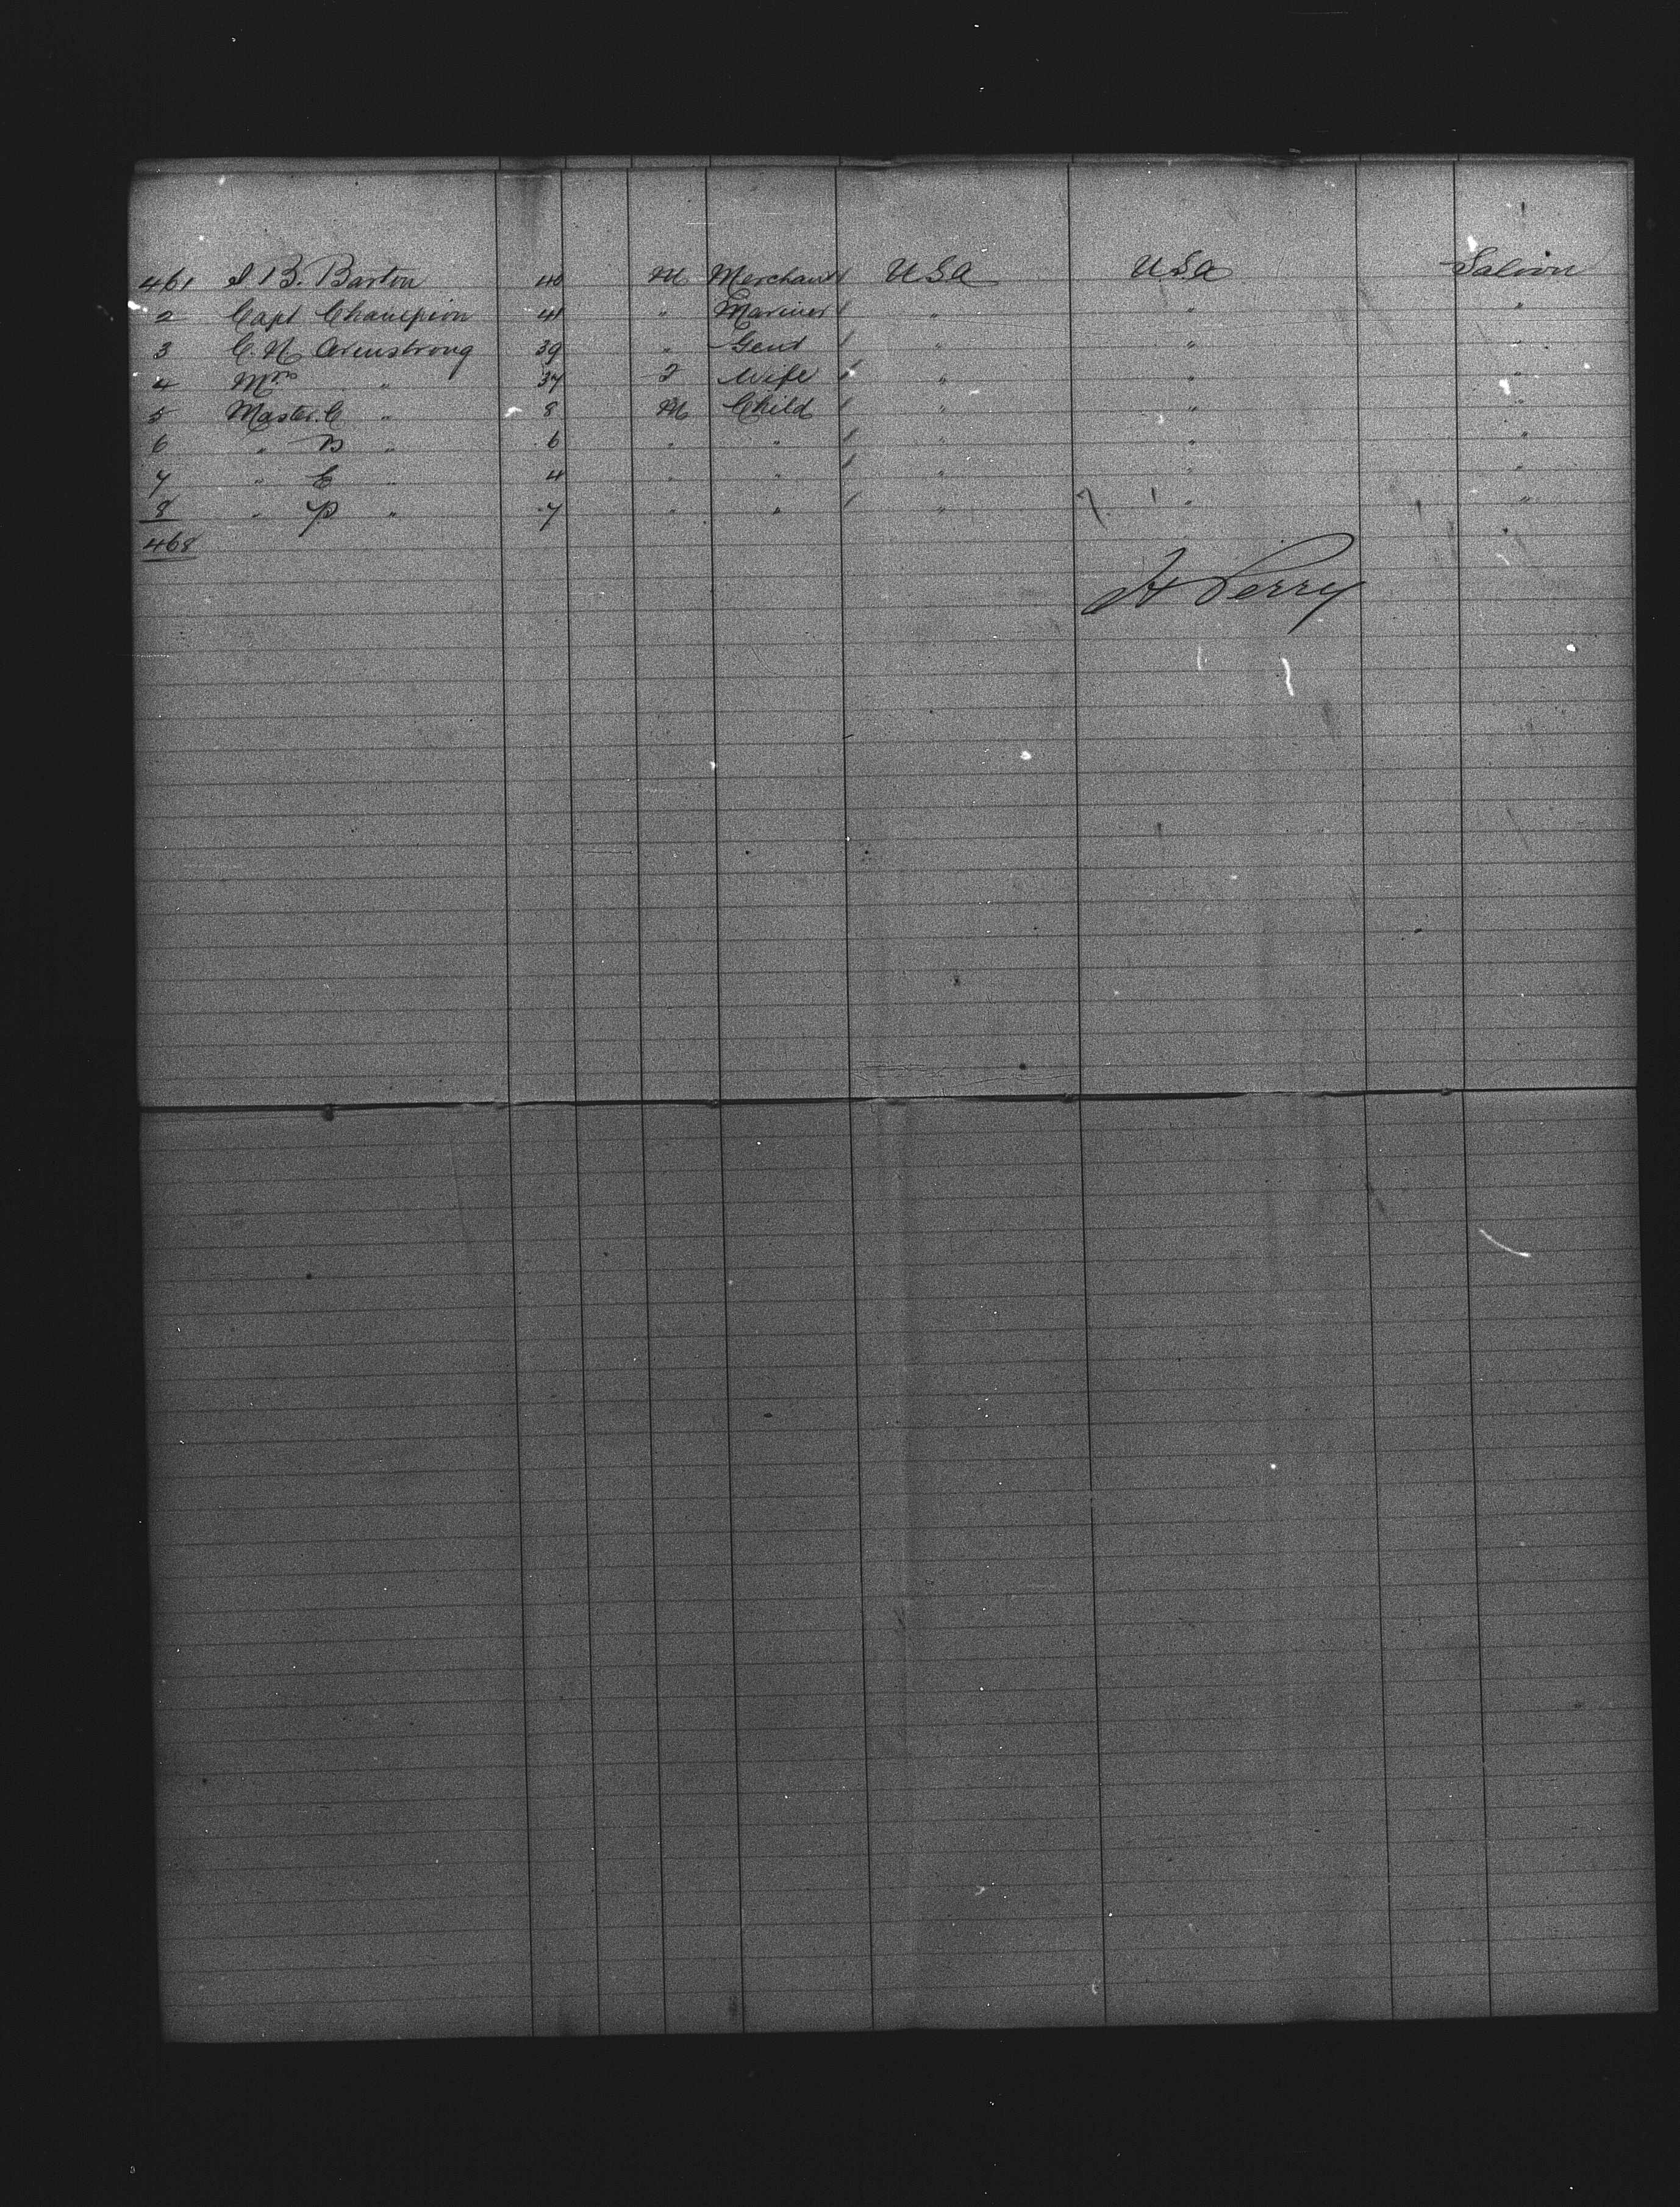 461 I B. Barton 40 M Merchant / USA USA Saloon
2 Capt Champion 41 " Mariner / " " "
3 C. N. Armstrong 39 " Gent / " " "
4 Mrs " 37 F Wife / " " "
5 Master. C " 8 M Child / " " "
6 " B " 6 " " / " " "
7 " E " 4 " " / " " "
8 " P " 7 " " / " " "
468
H Perry